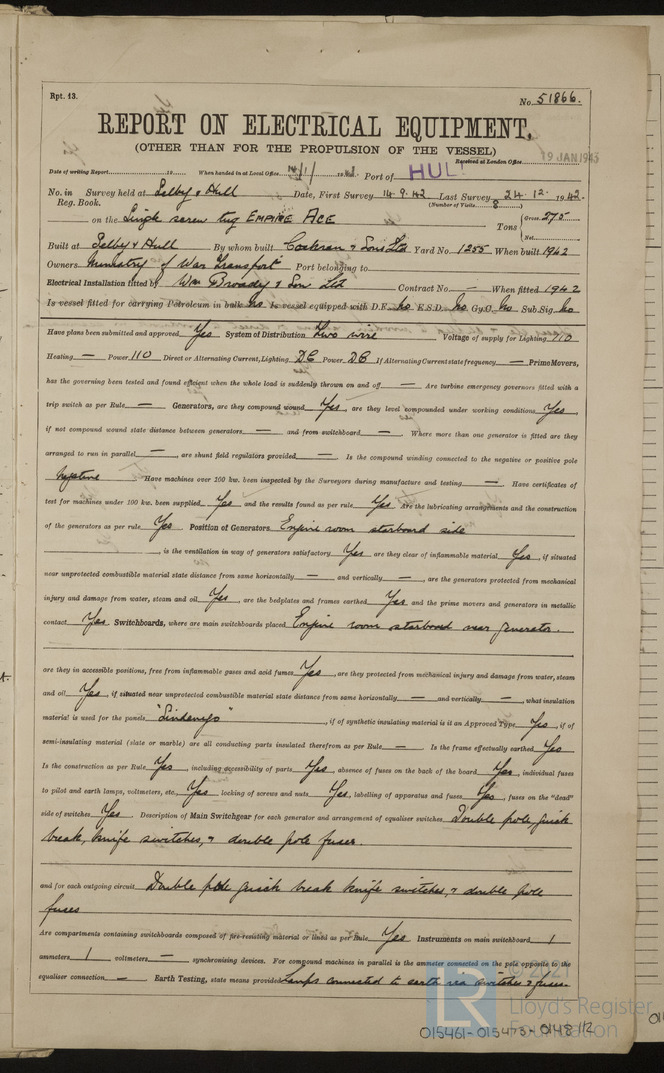 Rpt. 13.
No. 51866.
REPORT ON ELECTRICAL EQUIPMENT.
(OTHER THAN FOR THE PROPULSION OF THE VESSEL)
Received at London Office 19 JAN 1943
Date of writing Report 19 When handed in at Local Office 14/1/1943 Port of HULL
No. in Survey held at Selby & Hull Date, First Survey 14.9.42 Last Survey 24.12.1942.
Reg. Book. (Number of Visits 8)
on the Single screw tug EMPIRE ACE Tons { Gross 275 Net
Built at Selby & Hull By whom built Cochran & Sons Ltd Yard No. 1255 When built 1942
Owners Ministry of War Transport Port belonging to
Electrical Installation fitted by Wm Broady & Son Ltd Contract No. — When fitted 1942
Is vessel fitted for carrying Petroleum in bulk No Is vessel equipped with D.F. No E.S.D. No Gy.C. No Sub.Sig. No
Have plans been submitted and approved Yes System of Distribution Two wire Voltage of supply for Lighting 110
Heating — Power 110 Direct or Alternating Current, Lighting DC Power DC If Alternating Current state frequency — Prime Movers,
has the governing been tested and found efficient when the whole load is suddenly thrown on and off — Are turbine emergency governors fitted with a
trip switch as per Rule — Generators, are they compound wound Yes, are they level compounded under working conditions Yes,
if not compound wound state distance between generators — and from switchboard — Where more than one generator is fitted are they
arranged to run in parallel —, are shunt field regulators provided — Is the compound winding connected to the negative or positive pole
Negative Have machines over 100 kw. been inspected by the Surveyors during manufacture and testing — Have certificates of
test for machines under 100 kw. been supplied Yes and the results found as per rule Yes Are the lubricating arrangements and the construction
of the generators as per rule Yes Position of Generators Engine room starboard side
, is the ventilation in way of generators satisfactory Yes are they clear of inflammable material Yes, if situated
near unprotected combustible material state distance from same horizontally — and vertically —, are the generators protected from mechanical
injury and damage from water, steam and oil Yes, are the bedplates and frames earthed Yes and the prime movers and generators in metallic
contact Yes Switchboards, where are main switchboards placed Engine room starboard near generator.
are they in accessible positions, free from inflammable gases and acid fumes Yes, are they protected from mechanical injury and damage from water, steam
and oil Yes, if situated near unprotected combustible material state distance from same horizontally — and vertically —, what insulation
material is used for the panels "Sindanyo", if of synthetic insulating material is it an Approved Type Yes, if of
semi-insulating material (slate or marble) are all conducting parts insulated therefrom as per Rule — Is the frame effectually earthed Yes
Is the construction as per Rule Yes, including accessibility of parts Yes, absence of fuses on the back of the board Yes, individual fuses
to pilot and earth lamps, voltmeters, etc. Yes locking of screws and nuts Yes, labelling of apparatus and fuses Yes, fuses on the "dead"
side of switches Yes Description of Main Switchgear for each generator and arrangement of equaliser switches Double pole, quick
break, knife switches, & double pole fuses.
and for each outgoing circuit Double pole quick break knife switches, & double pole
fuses
Are compartments containing switchboards composed of fire-resisting material or lined as per Rule Yes Instruments on main switchboard 1
ammeters 1 voltmeters — synchronising devices. For compound machines in parallel is the ammeter connected on the pole opposite to the
equaliser connection — Earth Testing, state means provided Lamps connected to earth via switches & fuses.
© 2021
LR
Lloyd's Register
Foundation
015461-015473-0148 1/2